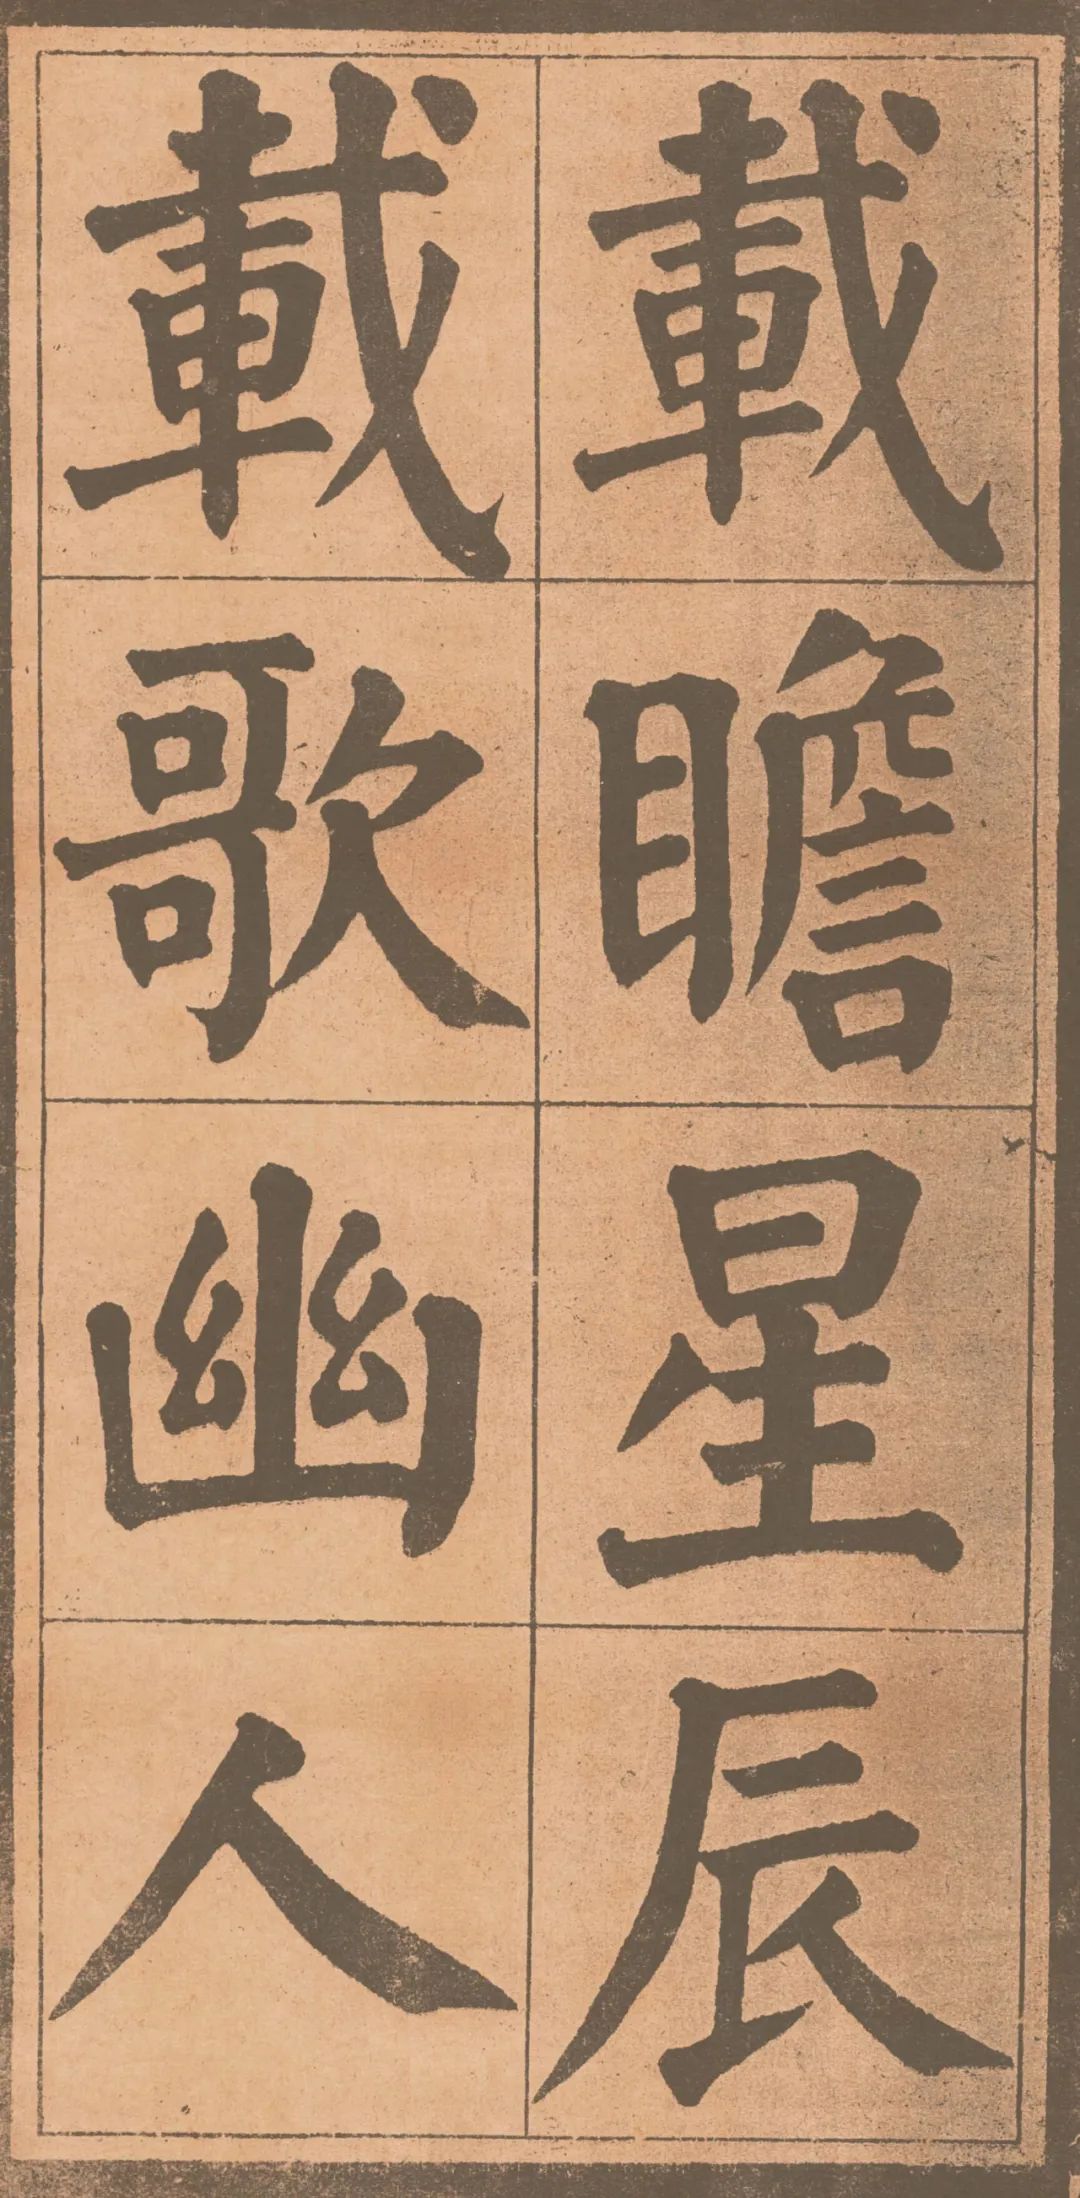 載瞻星辰
載歌幽人